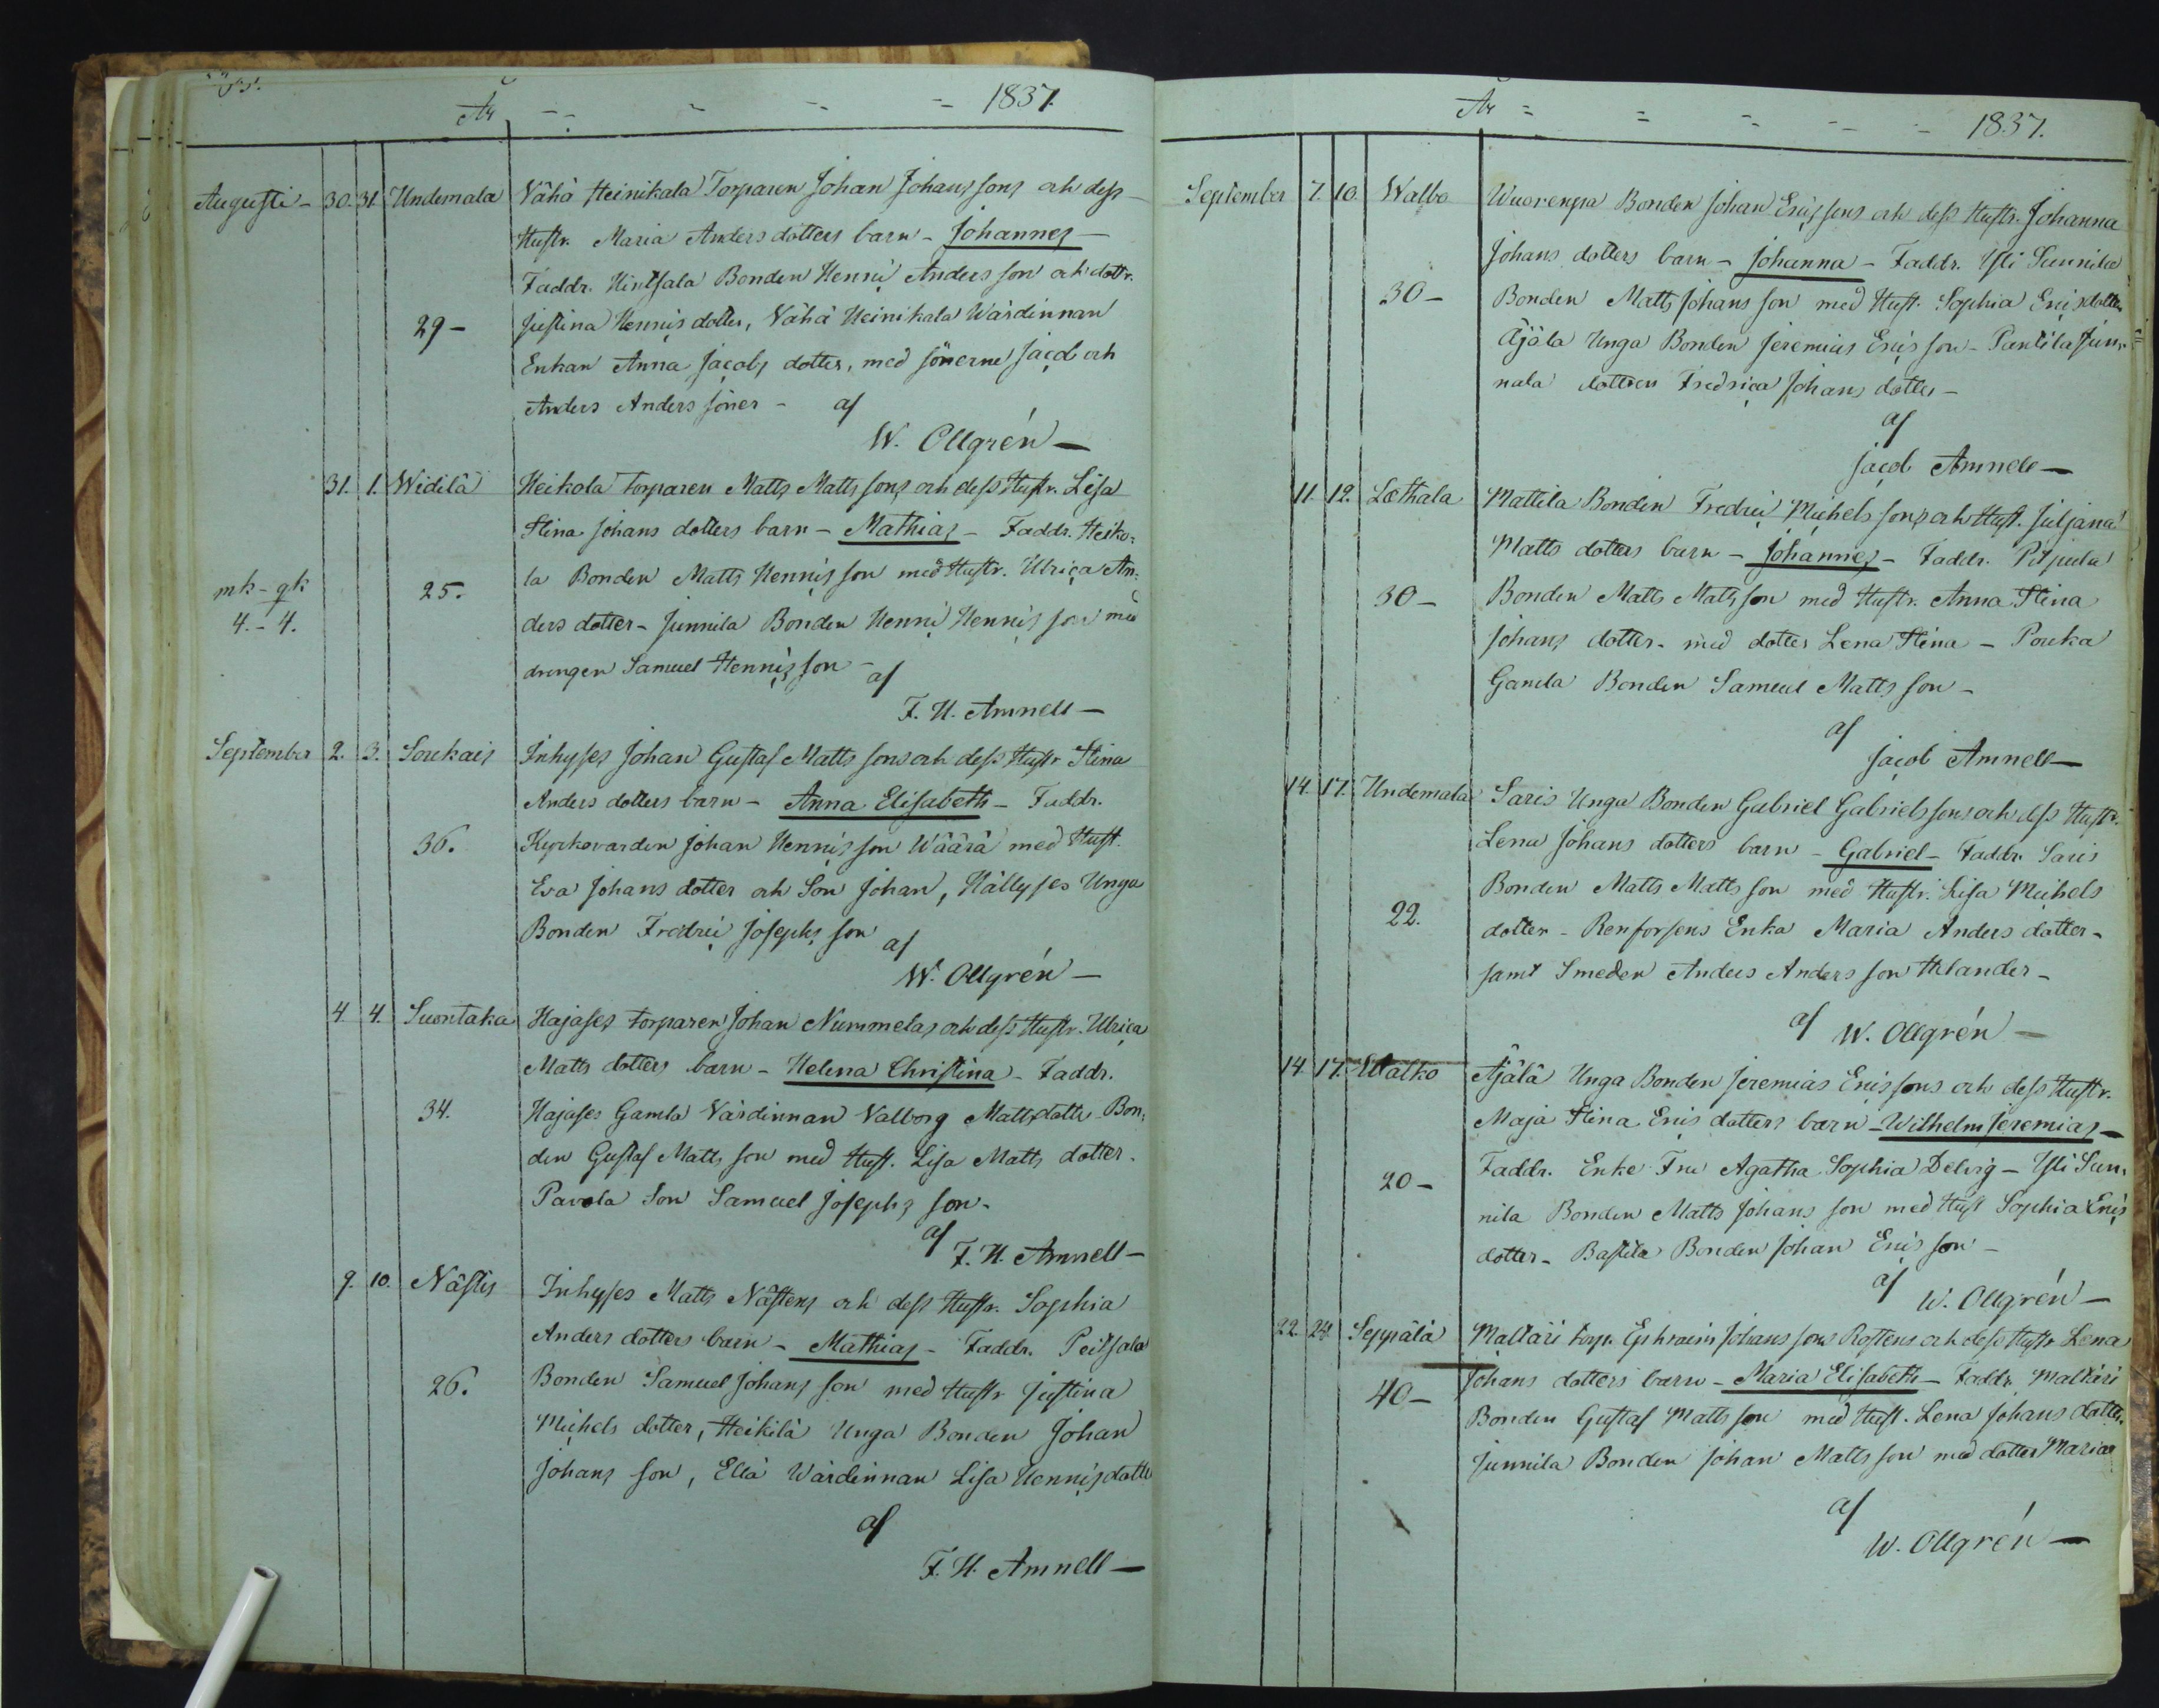 År 1837.
Augusti - 30. 31. Undemala Vähä Heinikala Torparen Johan Johans sons och dess
Hustr. Maria Anders dotters barn - Johannes -
Faddr. Hintsala Bonden Henric Anders son och dottr.
29 - Justina Henrics dotter, Vähä Heinikala Wärdinnan
Enkan Anna Jacobs dotter, med sönerne Jacob och
Anders Anders söner - af
W. Ollgrén -
31. 1. Widilä Heikola torparen Matts Matts sons och dess Hustr. Lisa
Stina Johans dotters barn - Mathias - Faddr. Heiko:
mk - qk 25. la Bonden Matts Henrics son med Hustr. Ulrica An:
4. - 4. ders dotter - Junnila Bonden Henric Henrics son med
drengen Samuel Henrics son - af
F. H. Amnell -
September 2. 3. Soukais Inhyses Johan Gustaf Matts sons och dess Hustr Stina
Anders dotters barn - Anna Elisabeth - Faddr.
36. Kyrkovärden Johan Henrics son Wäärä med Hust.
Eva Johans dotter och Son Johan, Hällyses Unga
Bonden Fredric Josephs son af
W. Ollgrén -
4 4. Suontaka Hajases torparen Johan Nummelas och dess Hustr. Ulrica
Matts dotters barn - Helena Christina - Faddr.
34. Hajases Gamla Värdinnan Valborg Matts dotter - Bon:
den Gustaf Matts son med Hust. Lisa Matts dotter.
Pavola Son Samuel Josephs son.
af F. H. Amnell -
9. 10. Nästis Inhyses Matts Nästens och dess Hustr. Sophia
Anders dotters barn - Mathias - Faddr. Peitsala
26. Bonden Samuel Johans son med Hustr Justina
Michels dotter, Heikilä Unga Bonden Johan
Johans son, Ellä Wärdinnan Lisa Henrics dotter
af
F. H. Amnell -
År 1837.
September 7. 10. Walbo Wuorenpa Bonden Johan Erics sons och dess Hustr. Johanna
Johans dotters barn - Johanna - Faddr. Yli Sunnila
30 - Bonden Matts Johans son med Hust. Sophia Erics dotter
Äjälä Unga Bonden Jeremias Erics son - Pantila Jun:
nala dottren Fredrica Johans dotter -
af
Jacob Amnell -
11. 12. Lathala Mattila Bonden Fredric Michels sons och Hust. Juljana
Matts dotters barn - Johannes - Faddr. Pitjula
30 - Bonden Matts Matts son med Hustr. Anna Stina
Johans dotter - med dotter Lena Stina - Pouka
Gamla Bonden Samuel Matts son -
af
Jacob Amnell -
14. 17. Undemala Saris Unga Bonden Gabriel Gabriels sons och dess Hustr.
Lena Johans dotters barn - Gabriel - Faddr. Saris
22. Bonden Matts Matts son med Hustr. Lisa Michels
dotter - Renforsens Enka Maria Anders dotter -
samt Smeden Anders Anders son Helander -
af W. Ollgrén -
14 17. Walko Äjälä Unga Bonden Jeremias Erics sons och dess Hustr.
Maja Stina Erics dotters barn - Wilhelm Jeremias -
20 - Faddr. Enke Fru Agatha Sophia Delvig - Yli Sun:
nila Bonden Matts Johans son med Hust Sophia Erics
dotter - Bastila Bonden Johan Erics son -
af W. Ollgrén -
22. 24. Seppälä Maltäri torp. Ephraim Johans sons Rostens och dess Hustr Lena
40 - Johans dotters barn - Maria Elisabeth - Faddr. Maltäri
Bonden Gustaf Matts son med Hust. Lena Johans dotter.
Junnila Bonden Johan Matts son med dotter Maria
af
W. Ollgrén -